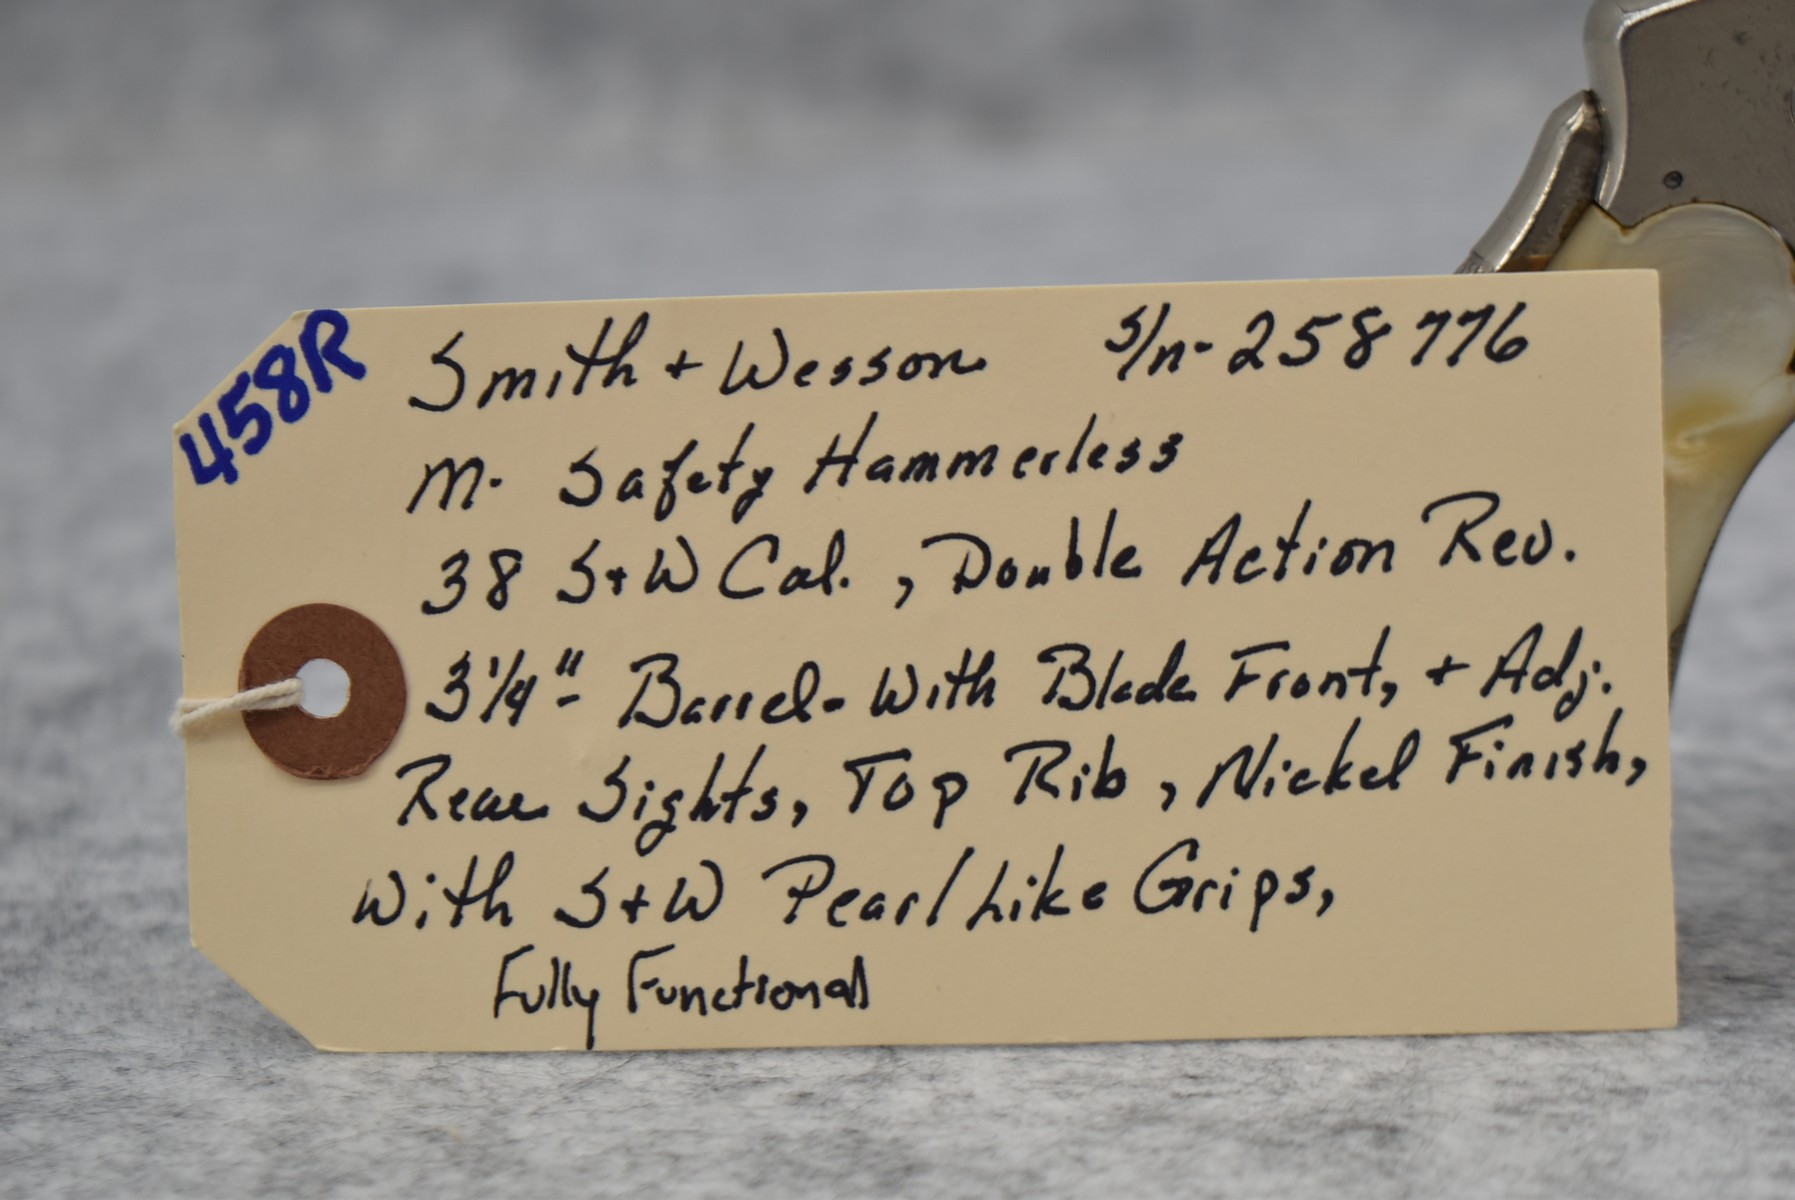 458R
Smith + Wesson S/n-258776
M. Safety Hammerless
38 S+W Cal., Double Action Rev.
3 1/4"- Barrel-With Blade Front, + Adj.
Rear Sights, Top Rib, Nickel Finish,
With S+W Pearl Like Grips,
Fully Functional